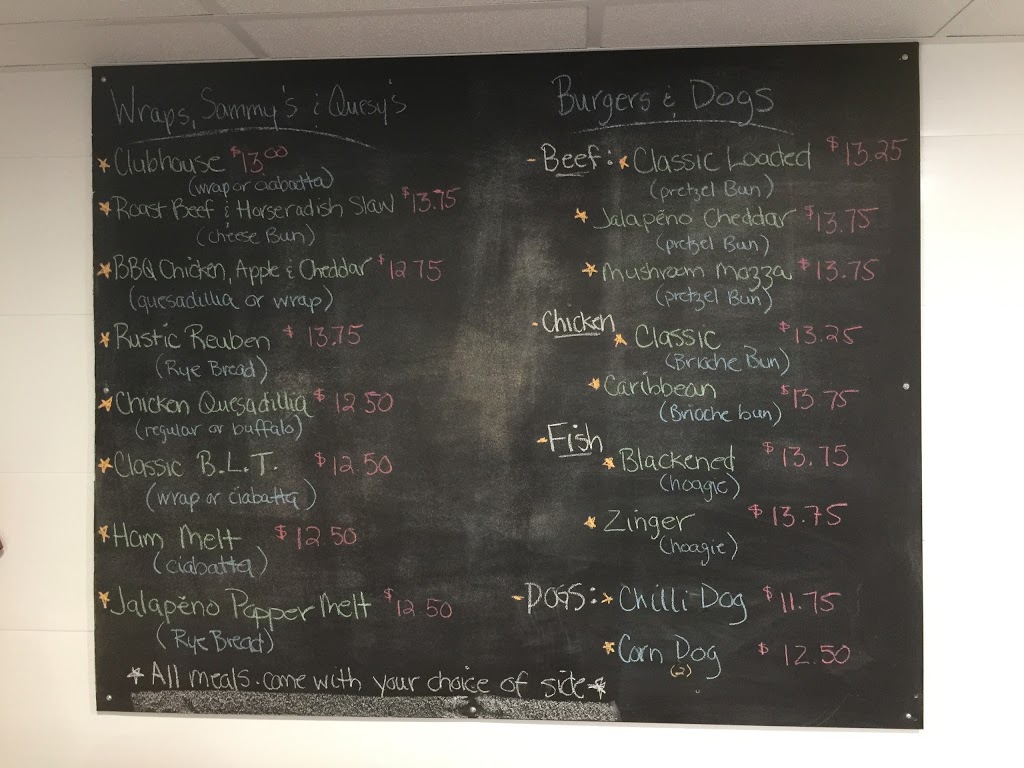 Wraps, Sammy's & Quesy's
Clubhouse $13.00
(wrap or ciabatta)
Roast Beef & Horseradish Slaw $13.75
(cheese Bun)
BBQ Chicken, Apple & Cheddar $12.75
(quesadillia or wrap)
Rustic Reuben $13.75
(Rye Bread)
Chicken Quesadillia $12.50
(regular or buffalo)
Classic B.L.T. $12.50
(wrap or ciabatta)
Ham Melt $12.50
(ciabatta)
Jalapéno Popper Melt $12.50
(Rye Bread)
Burgers & Dogs
- Beef: Classic Loaded $13.25
(pretzel Bun)
Jalapéno Cheddar $13.75
(pretzel Bun)
Mushroom Mozza $13.75
(pretzel Bun)
- Chicken
Classic $13.25
(Brioche Bun)
Caribbean $13.75
(Brioche bun)
- Fish
Blackened $13.75
(hoagie)
Zinger $13.75
(hoagie)
- DOGS: Chilli Dog $11.75
Corn Dog $12.50
(2)
* All meals come with your choice of side *